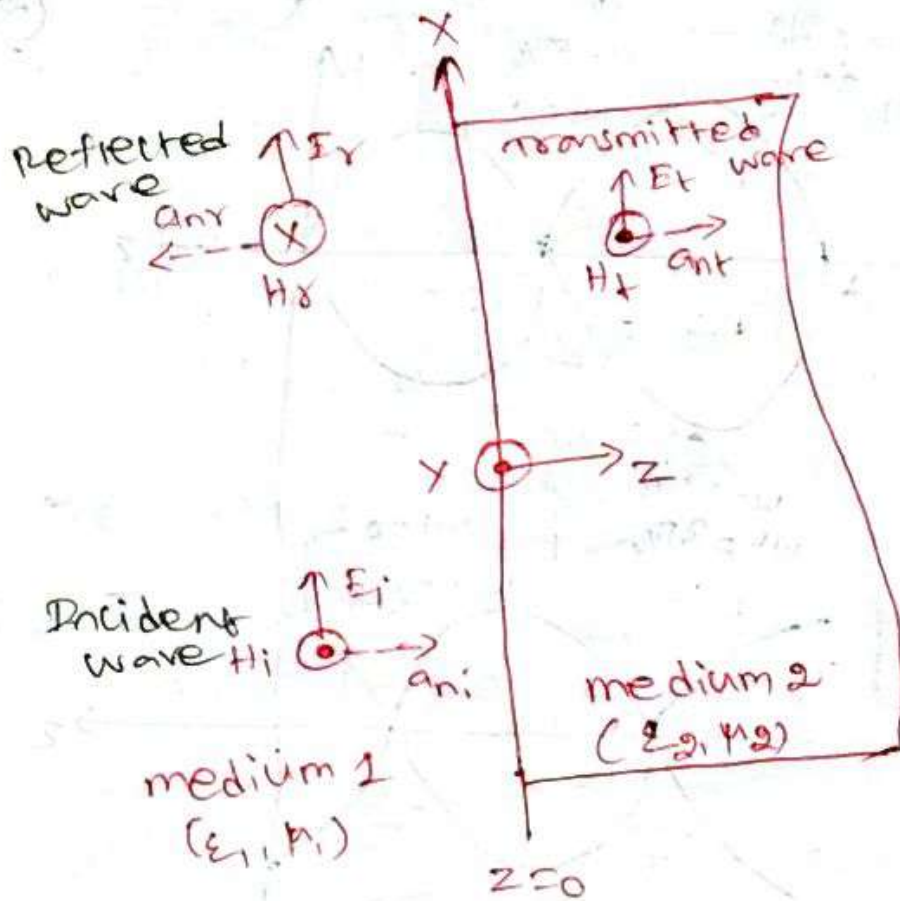 X
Reflected
wave
Er
anr
X
Hr
Transmitted
wave
Et
Ht
ant
Y
Z
Incident
wave
Ei
Hi
ani
medium 1
(ε1, μ1)
medium 2
(ε2, μ2)
z=0